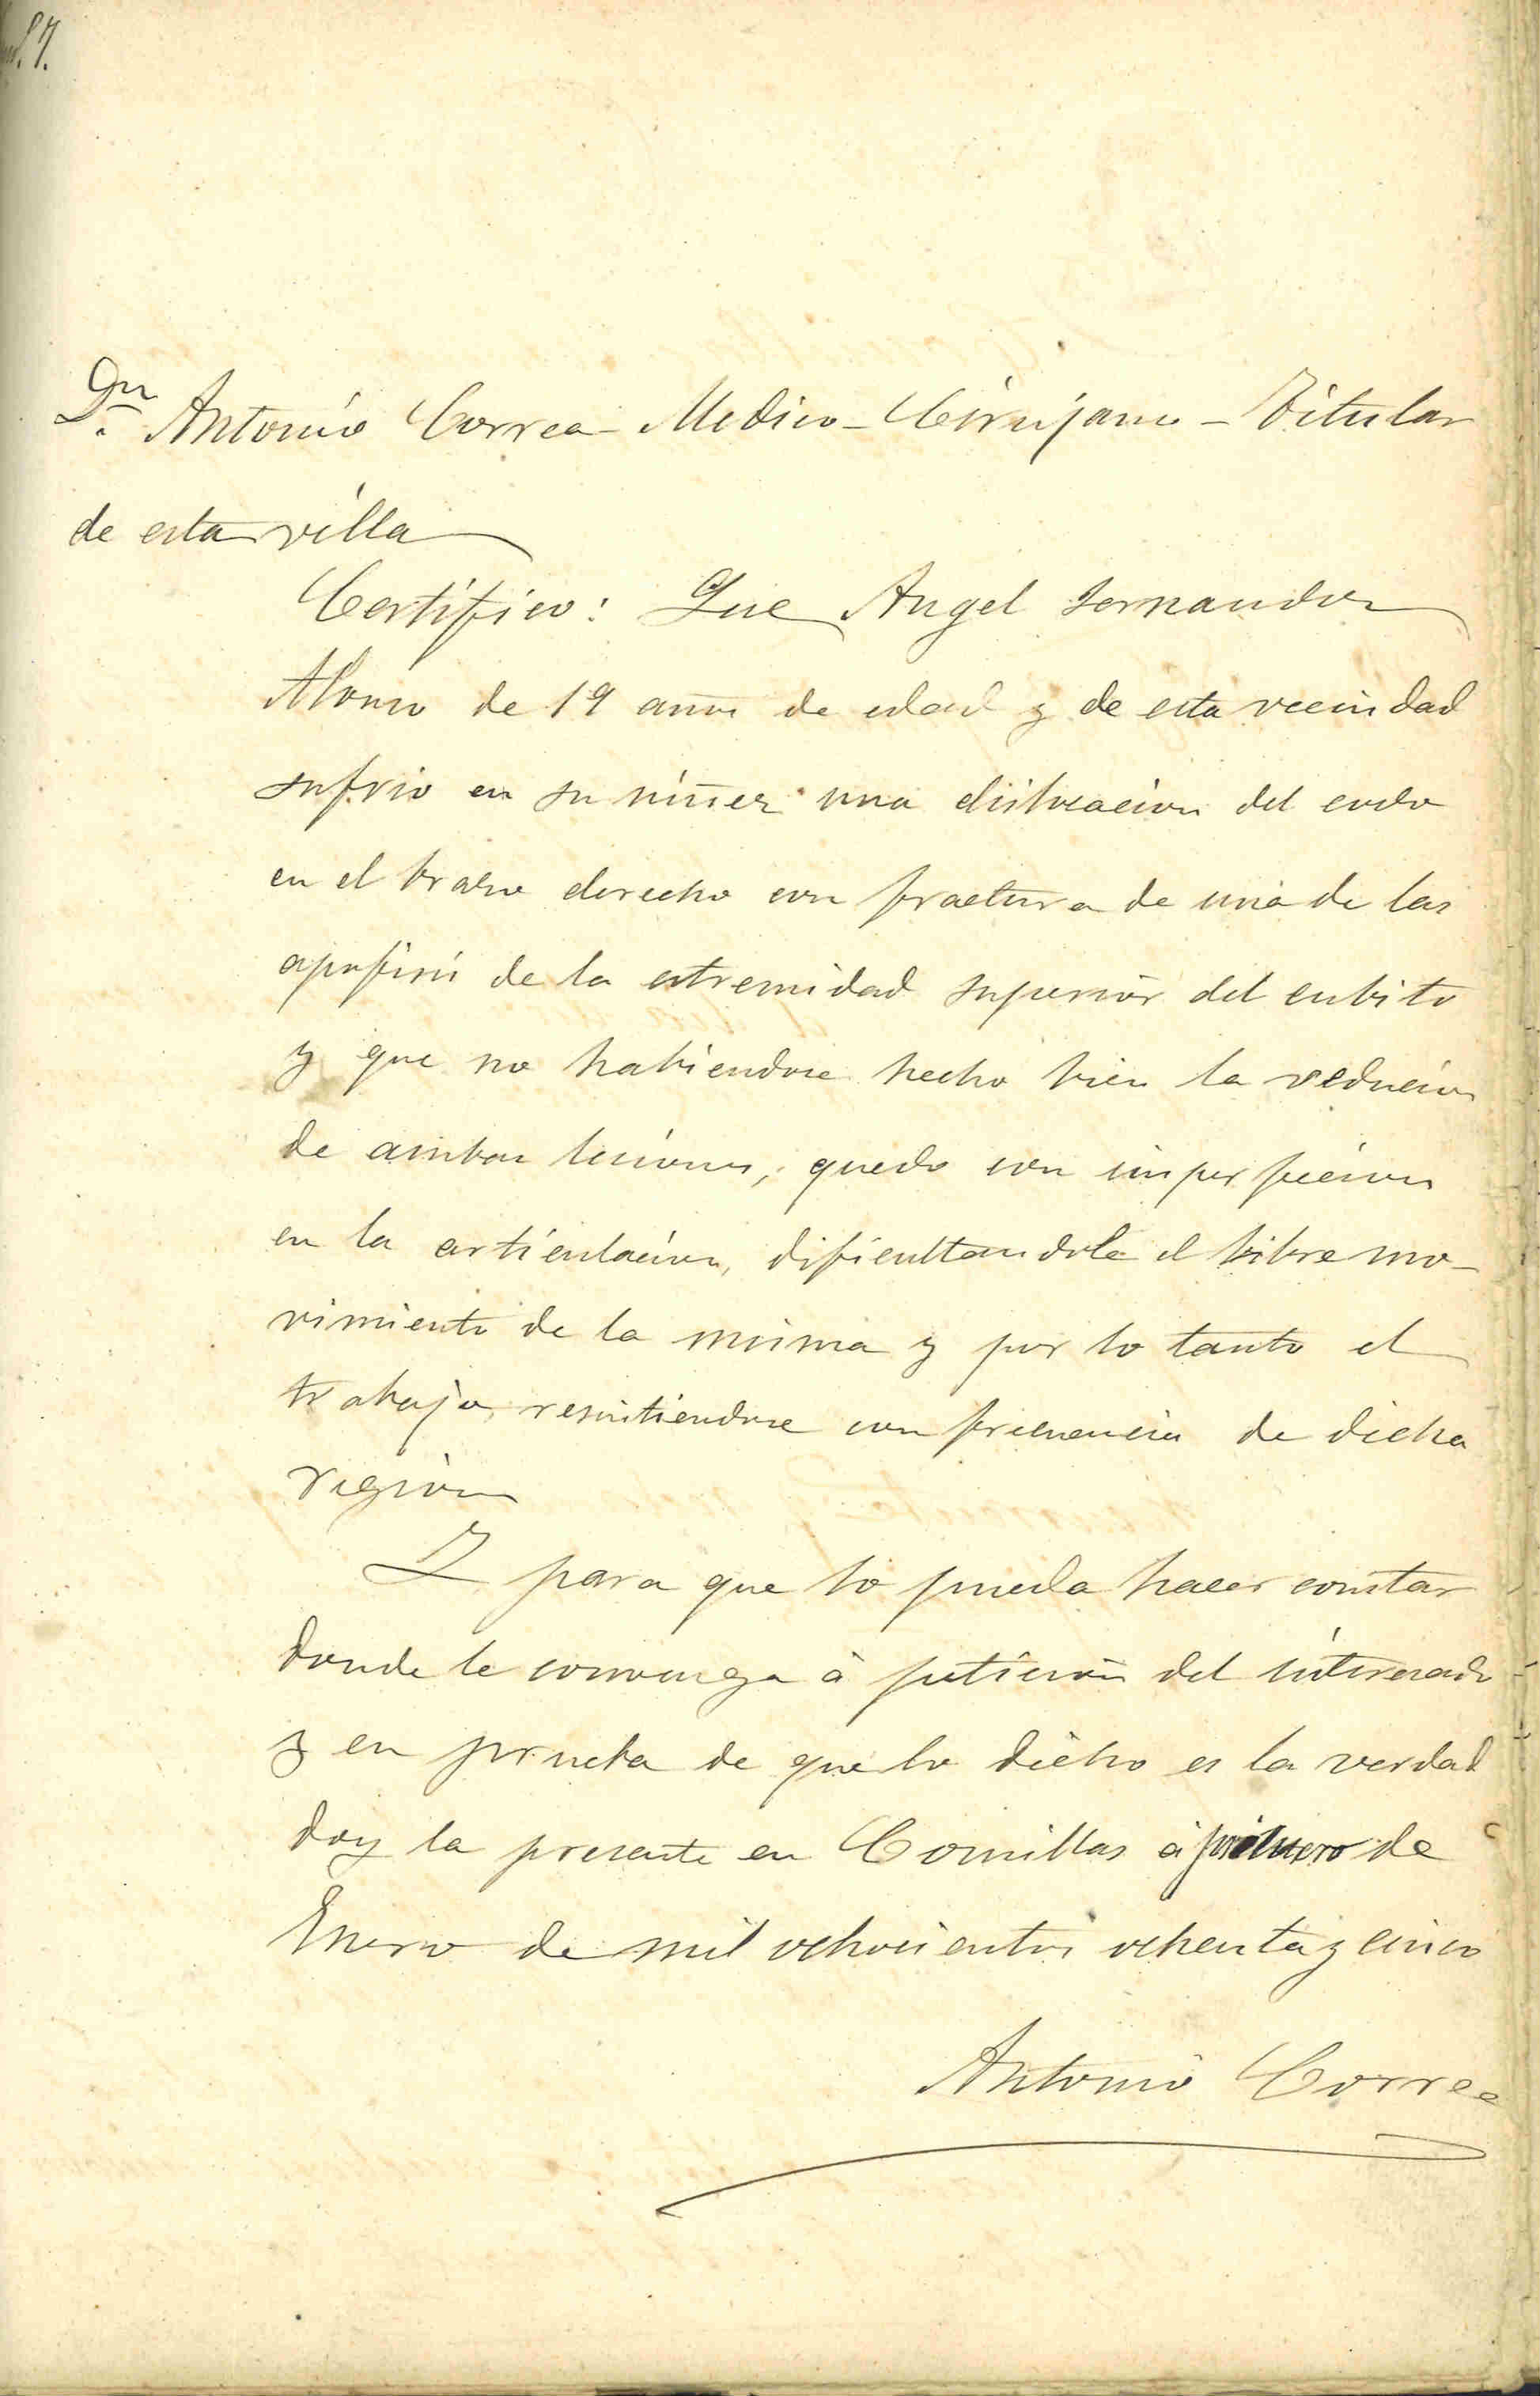 Dn. Antonio Correa Medico-Cirujano-Titular
de esta villa
Certifico: Que Angel Fernandez
Alonso de 19 años de edad y de esta vecindad
sufrio en su niñez una dislocacion del codo
en el brazo derecho con fractura de una de las
apofisis de la estremidad superior del cubito
y que no habiendose hecho bien la reducion
de ambas lesiones, quedo con imperfecion
en la articulacion, dificultandole el libre mo-
vimiento de la misma y por lo tanto el
trabajo, resintiendose con frecuencia de dicha
region
Y para que lo pueda hacer constar
donde le convenga à peticion del interesado
y en prueba de que lo dicho es la verdad
doy la presente en Comillas á primero de
Enero de mil ochocientos ochenta y cinco
Antonio Correa